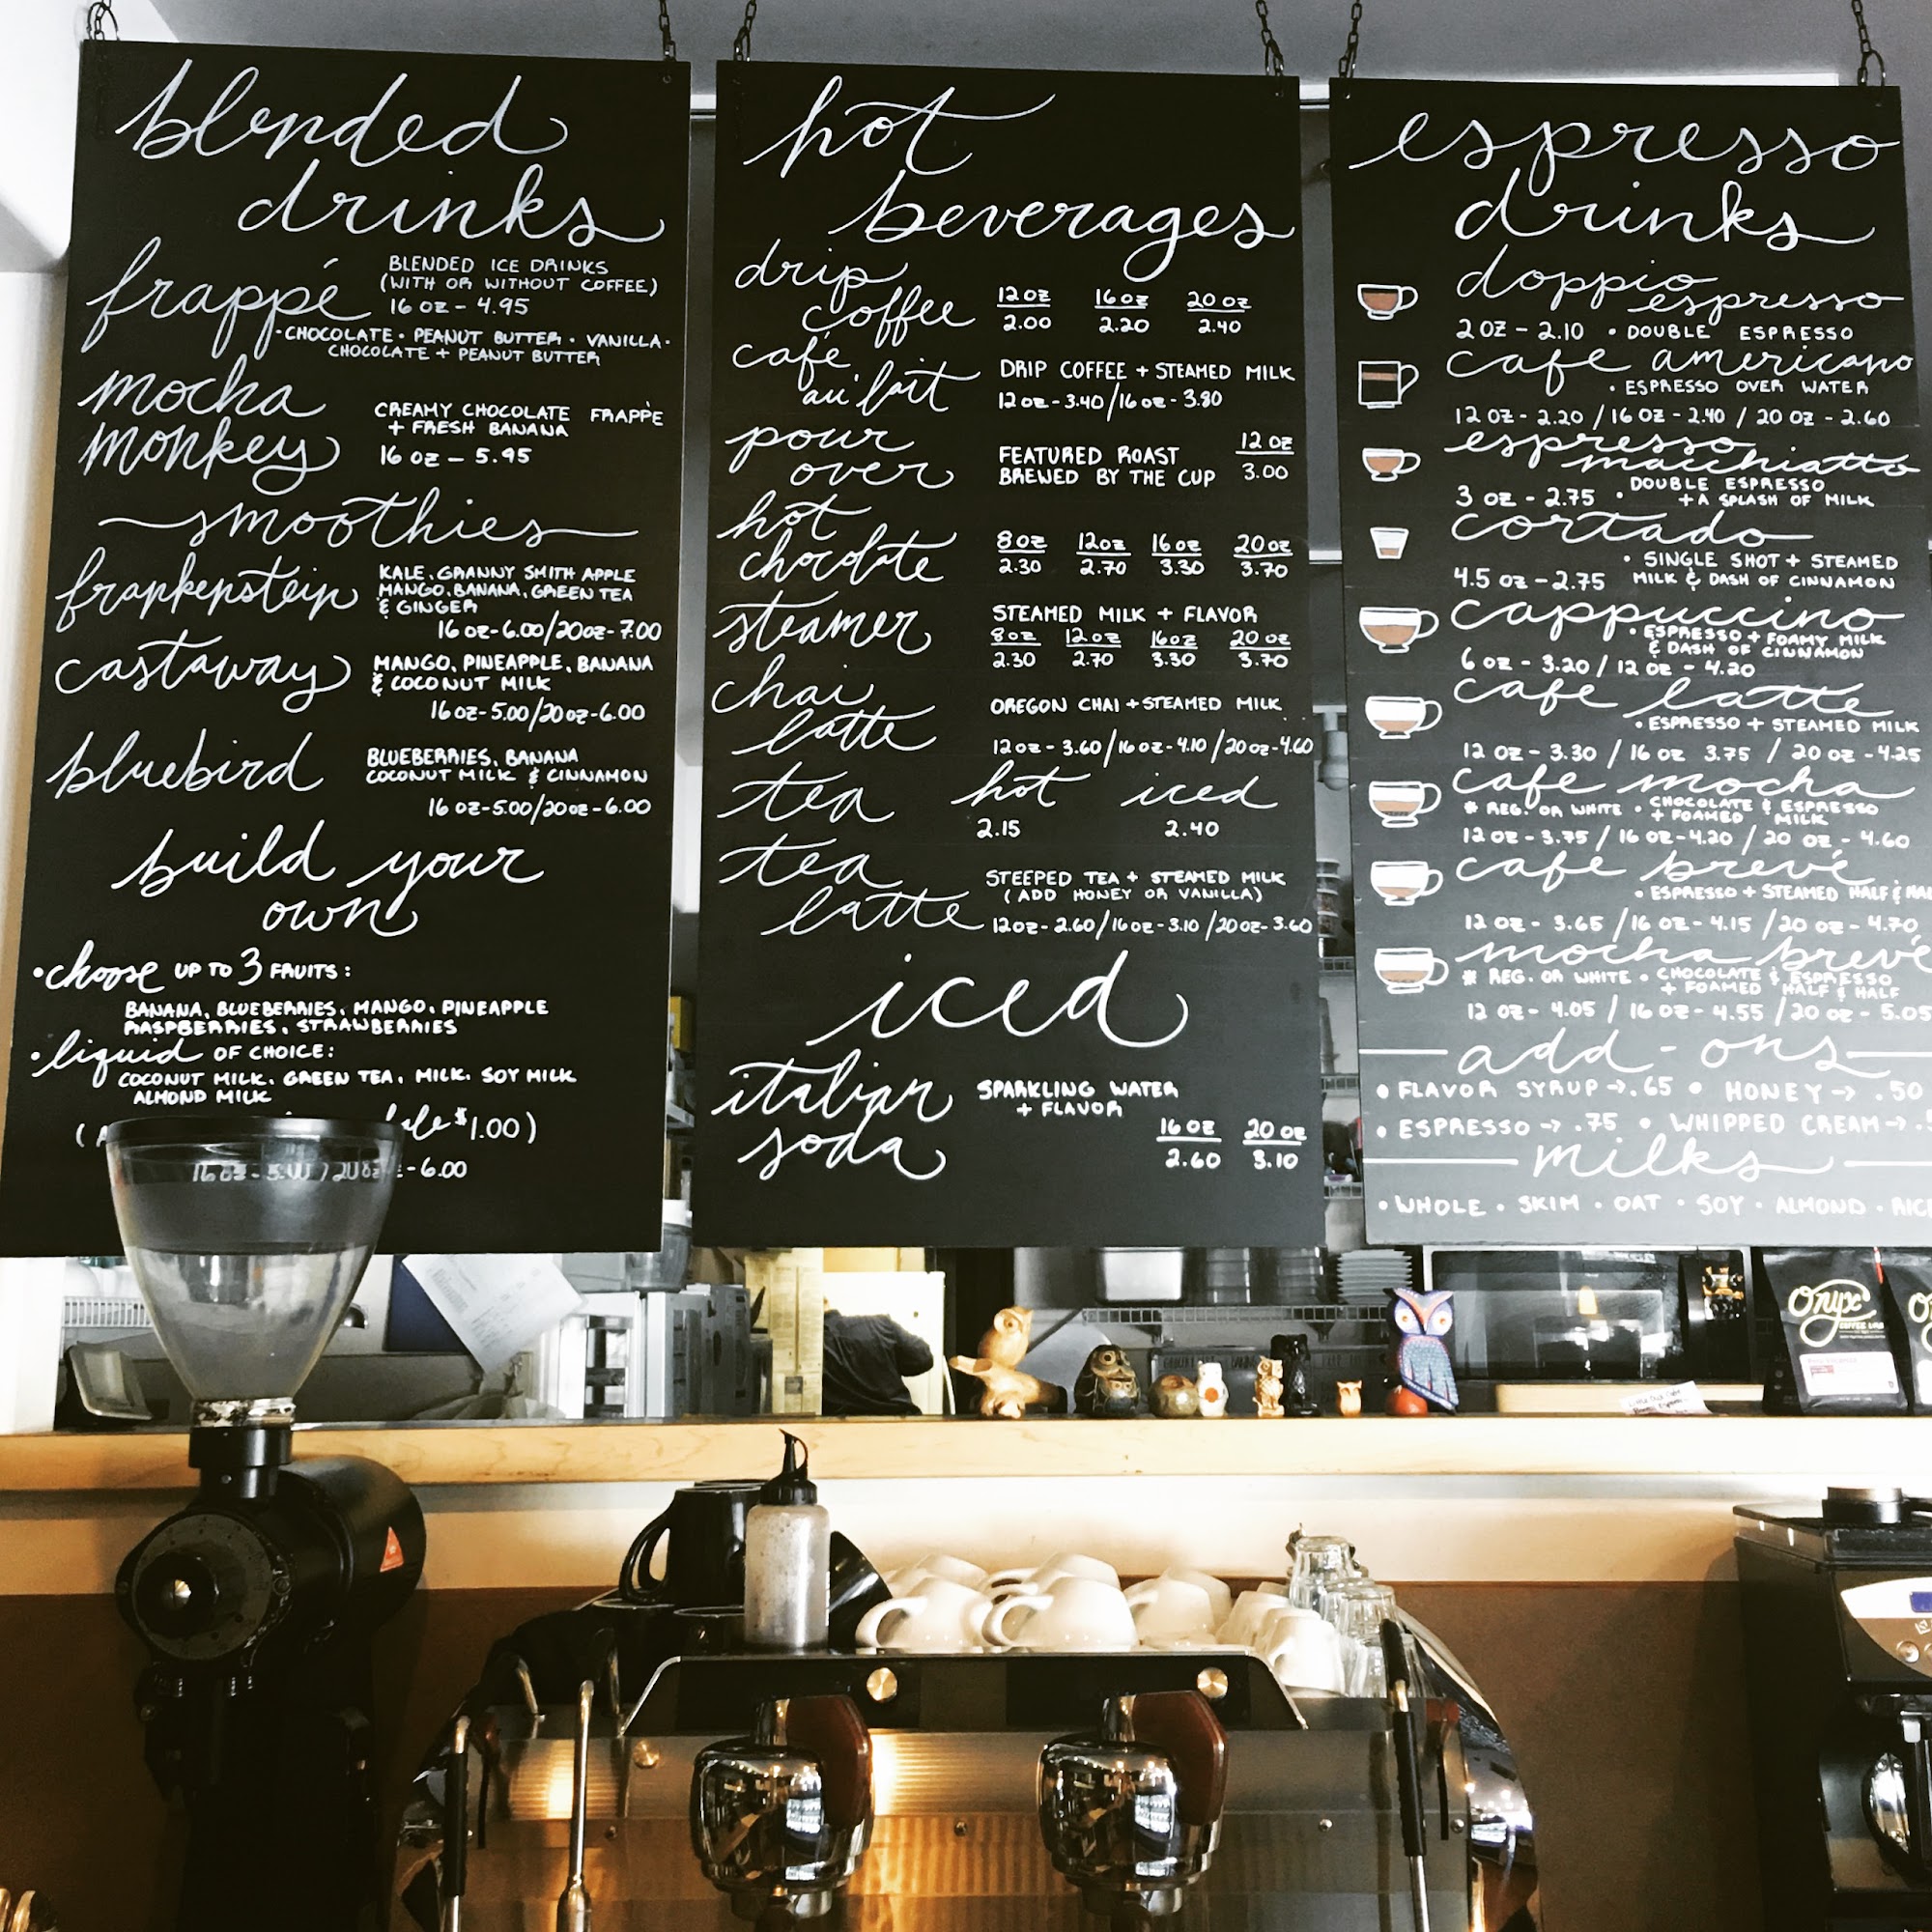 blended
drinks
frappé
BLENDED ICE DRINKS
(WITH OR WITHOUT COFFEE)
16 OZ - 4.95
• CHOCOLATE • PEANUT BUTTER • VANILLA •
CHOCOLATE + PEANUT BUTTER
mocha
monkey
CREAMY CHOCOLATE FRAPPÈ
+ FRESH BANANA
16 OZ - 5.95
smoothies
frankenstein
KALE, GRANNY SMITH APPLE
MANGO, BANANA, GREEN TEA
& GINGER
16 OZ-6.00/20OZ-7.00
castaway
MANGO, PINEAPPLE, BANANA
& COCONUT MILK
16 OZ-5.00/20 OZ-6.00
bluebird
BLUEBERRIES, BANANA
COCONUT MILK & CINNAMON
16 OZ-5.00/20 OZ-6.00
build your
own
• choose UP TO 3 FRUITS:
BANANA, BLUEBERRIES, MANGO, PINEAPPLE
RASPBERRIES, STRAWBERRIES
• liquid OF CHOICE:
COCONUT MILK, GREEN TEA, MILK, SOY MILK
ALMOND MILK
$1.00)
-6.00
hot
beverages
drip
coffee
12 OZ 16 OZ 20 OZ
2.00 2.20 2.40
café
au lait
DRIP COFFEE + STEAMED MILK
12 OZ - 3.40/16 OZ - 3.80
pour
over
FEATURED ROAST
BREWED BY THE CUP
12 OZ
3.00
hot
chocolate
8 OZ 12 OZ 16 OZ 20 OZ
2.30 2.70 3.30 3.70
steamer
STEAMED MILK + FLAVOR
8 OZ 12 OZ 16 OZ 20 OZ
2.30 2.70 3.30 3.70
chai
latte
OREGON CHAI + STEAMED MILK
12 OZ - 3.60/16 OZ - 4.10/20 OZ - 4.60
tea hot iced
2.15 2.40
tea
latte
STEEPED TEA + STEAMED MILK
(ADD HONEY OR VANILLA)
12 OZ - 2.60/16 OZ - 3.10/20 OZ - 3.60
iced
italian
soda
SPARKLING WATER
+ FLAVOR
16 OZ 20 OZ
2.60 3.10
espresso
drinks
doppio
espresso
2 OZ - 2.10 • DOUBLE ESPRESSO
cafe americano
• ESPRESSO OVER WATER
12 OZ - 2.20 / 16 OZ - 2.40 / 20 OZ - 2.60
espresso
macchiatto
DOUBLE ESPRESSO
3 OZ - 2.75 • + A SPLASH OF MILK
cortado
• SINGLE SHOT + STEAMED
4.5 OZ - 2.75 MILK & DASH OF CINNAMON
cappuccino
• ESPRESSO + FOAMY MILK
& DASH OF CINNAMON
6 OZ - 3.20 / 12 OZ - 4.20
cafe latte
• ESPRESSO + STEAMED MILK
12 OZ - 3.30 / 16 OZ 3.75 / 20 OZ - 4.25
cafe mocha
* REG. OR WHITE • CHOCOLATE & ESPRESSO
+ FOAMED MILK
12 OZ - 3.75 / 16 OZ - 4.20 / 20 OZ - 4.60
cafe brevé
• ESPRESSO + STEAMED HALF &
12 OZ - 3.65 / 16 OZ - 4.15 / 20 OZ - 4.70
mocha brevé
* REG. OR WHITE • CHOCOLATE & ESPRESSO
+ FOAMED HALF & HALF
12 OZ - 4.05 / 16 OZ - 4.55 / 20 OZ - 5.05
add-ons
• FLAVOR SYRUP → .65 • HONEY → .50
• ESPRESSO → .75 • WHIPPED CREAM →
milks
• WHOLE • SKIM • OAT • SOY • ALMOND •
Onyx
COFFEE LAB